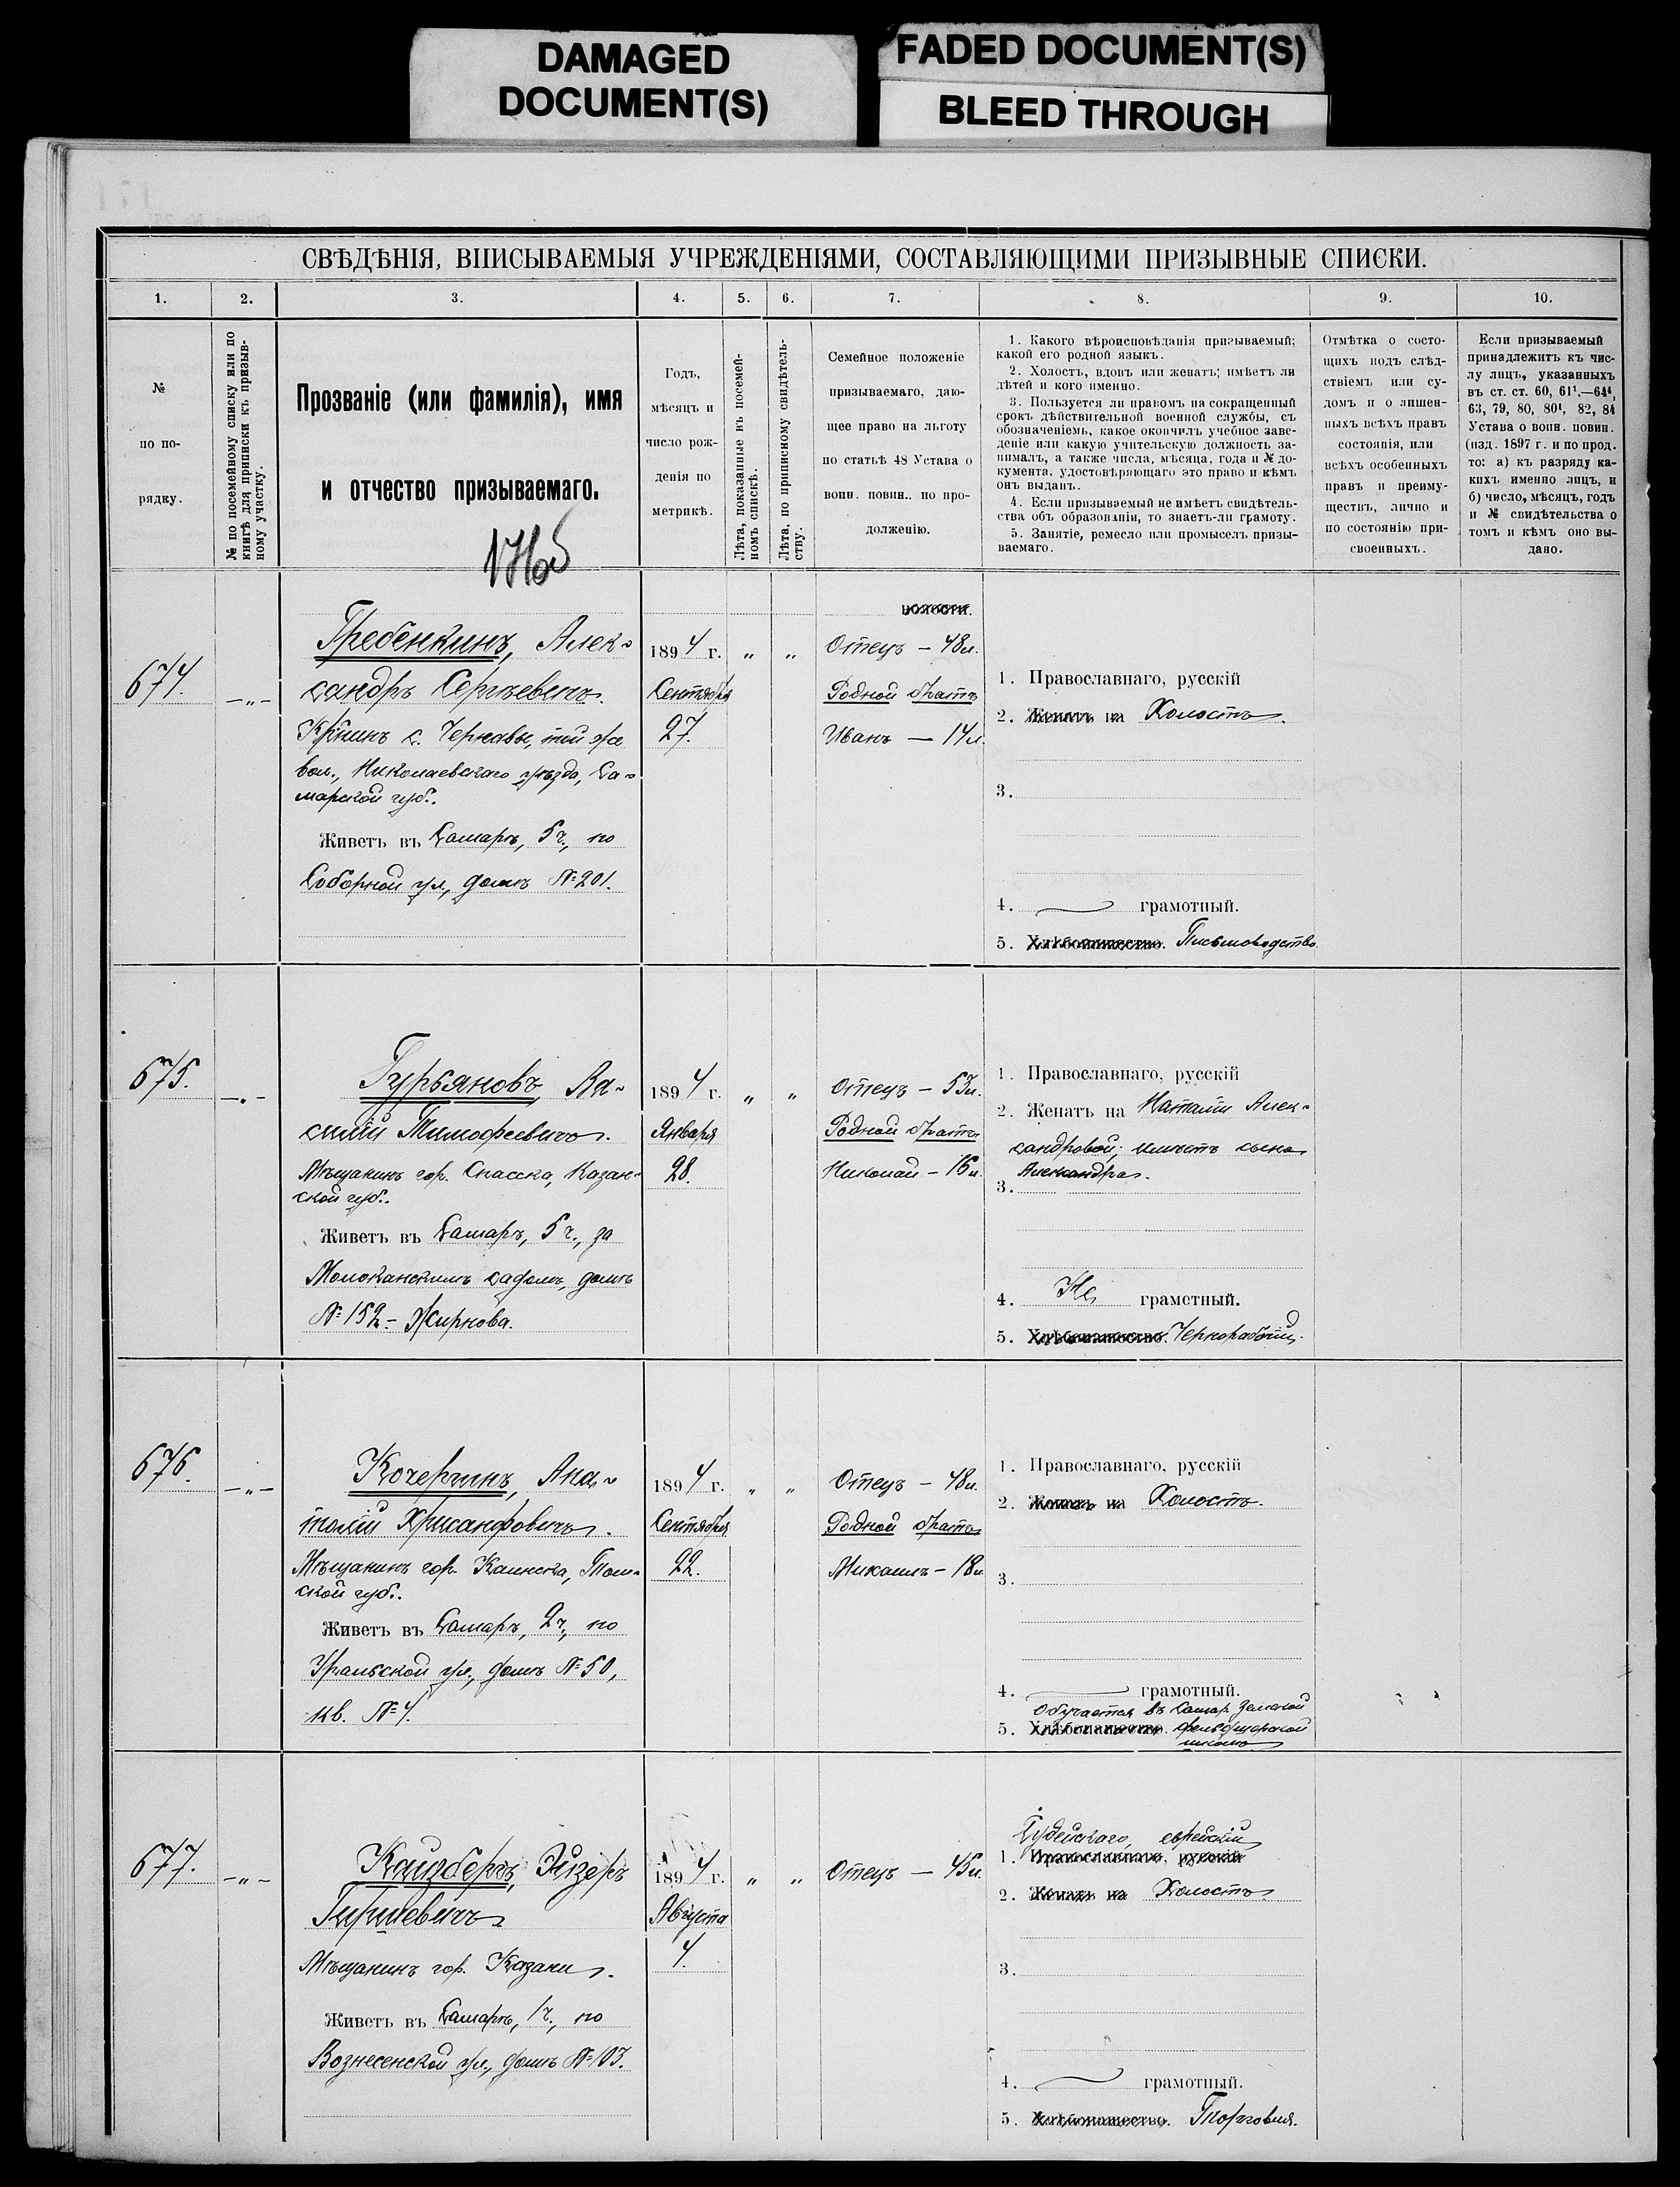 DAMAGED
DOCUMENT(S)
FADED DOCUMENT(S)
BLEED THROUGH
СВѢДѢНІЯ, ВПИСЫВАЕМЫЯ УЧРЕЖДЕНІЯМИ, СОСТАВЛЯЮЩИМИ ПРИЗЫВНЫЕ СПИСКИ.
1. 2. 3. 4. 5. 6. 7. 8. 9. 10.
№
по по-
рядку.
№ по посемейному списку или по
книгѣ для приписки къ призыв-
ному участку.
Прозваніе (или фамилія), имя
и отчество призываемаго.
Годъ,
мѣсяцъ и
число рож-
денія по
метрикѣ.
Лѣта, показанные въ посемей-
номъ спискѣ.
Лѣта, по приписному свидѣтель-
ству.
Семейное положеніе
призываемаго, даю-
щее право на льготу
по статьѣ 48 Устава о
воин. повин. по про-
долженію.
1. Какого вѣроисповѣданія призываемый;
какой его родной языкъ.
2. Холостъ, вдовъ или женатъ; имѣетъ ли
дѣтей и кого именно.
3. Пользуется ли правомъ на сокращенный
срокъ дѣйствительной военной службы, съ
обозначеніемъ, какое окончилъ учебное заве-
деніе или какую учительскую должность за-
нималъ, а также числа, мѣсяца, года и № до-
кумента, удостовѣряющаго это право и кѣмъ
онъ выданъ.
4. Если призываемый не имѣетъ свидѣтель-
ства объ образованіи, то знаетъ-ли грамоту.
5. Занятіе, ремесло или промыселъ призы-
ваемаго.
Отмѣтка о состо-
щихъ подъ слѣд-
ствіемъ или су-
домъ и о лишен-
ныхъ всѣхъ правъ
состоянія, или
всѣхъ особенныхъ
правъ и преиму-
ществъ, лично и
по состоянію при-
своенныхъ.
Если призываемый
принадлежитъ къ чис-
лу лицъ, указанныхъ
въ ст. ст. 60, 61¹.—64⁴,
63, 79, 80, 80¹, 82, 84
Устава о воин. повин.
(изд. 1897 г. и по прод.
то: а) къ разряду ка-
кихъ именно лицъ, и
б) число, мѣсяцъ, годъ
и № свидѣтельства о
томъ и кѣмъ оно вы-
дано.
674.
— „ —
Гребенкинъ, Алек-
сандръ Сергѣевичъ.
Кр-нинъ с. Чернавы, той же
вол., Николаевскаго уѣзда, Са-
марской губ.
Живетъ въ Самарѣ, 5 ч., по
Соборной ул., домъ № 201.
1894 г.
Сентября
27.
„ „
волости.
Отецъ — 48 л.
Родной братъ
Иванъ — 14 л.
1. Православнаго, русскій
2. Женатъ на Холостъ.
3.
4. грамотный.
5. Хлѣбопашество. Письмоводство.
675.
— „ —
Гурьяновъ, Ва-
силій Тимофеевичъ.
Мѣщанинъ гор. Спасска, Казан-
ской губ.
Живетъ въ Самарѣ, 5 ч., за
Молоканскимъ садомъ, домъ
№ 152 — Жирнова.
1894 г.
Января
28.
„ „
Отецъ — 53 л.
Родной братъ
Николай — 16 л.
1. Православнаго, русскій
2. Женатъ на Наталіи Алек-
сандровой; имѣетъ сына
Александра.
3.
4. Не грамотный.
5. Хлѣбопашество. Чернорабочій.
676.
— „ —
Кочергинъ, Ана-
толій Хрисанфовичъ.
Мѣщанинъ гор. Каинска, Том-
ской губ.
Живетъ въ Самарѣ, 2 ч., по
Уральской ул., домъ № 50,
кв. № 4.
1894 г.
Сентября
22.
„ „
Отецъ — 48 л.
Родной братъ
Михаилъ — 18 л.
1. Православнаго, русскій
2. Женатъ на Холостъ.
3.
4. грамотный.
Обучается въ Самар. Земской
5. Хлѣбопашество. фельдшерской
школѣ
677.
— „ —
Кайзберъ, Эйзеръ
Гиршевичъ
Мѣщанинъ гор. Казани.
Живетъ въ Самарѣ, 1 ч., по
Вознесенской ул., домъ № 103.
1894 г.
Августа
4.
„ „
Отецъ — 45 л.
Іудейскаго, еврейскій
1. Православнаго, русскій
2. Женатъ на Холостъ
3.
4. грамотный.
5. Хлѣбопашество. Торговля.